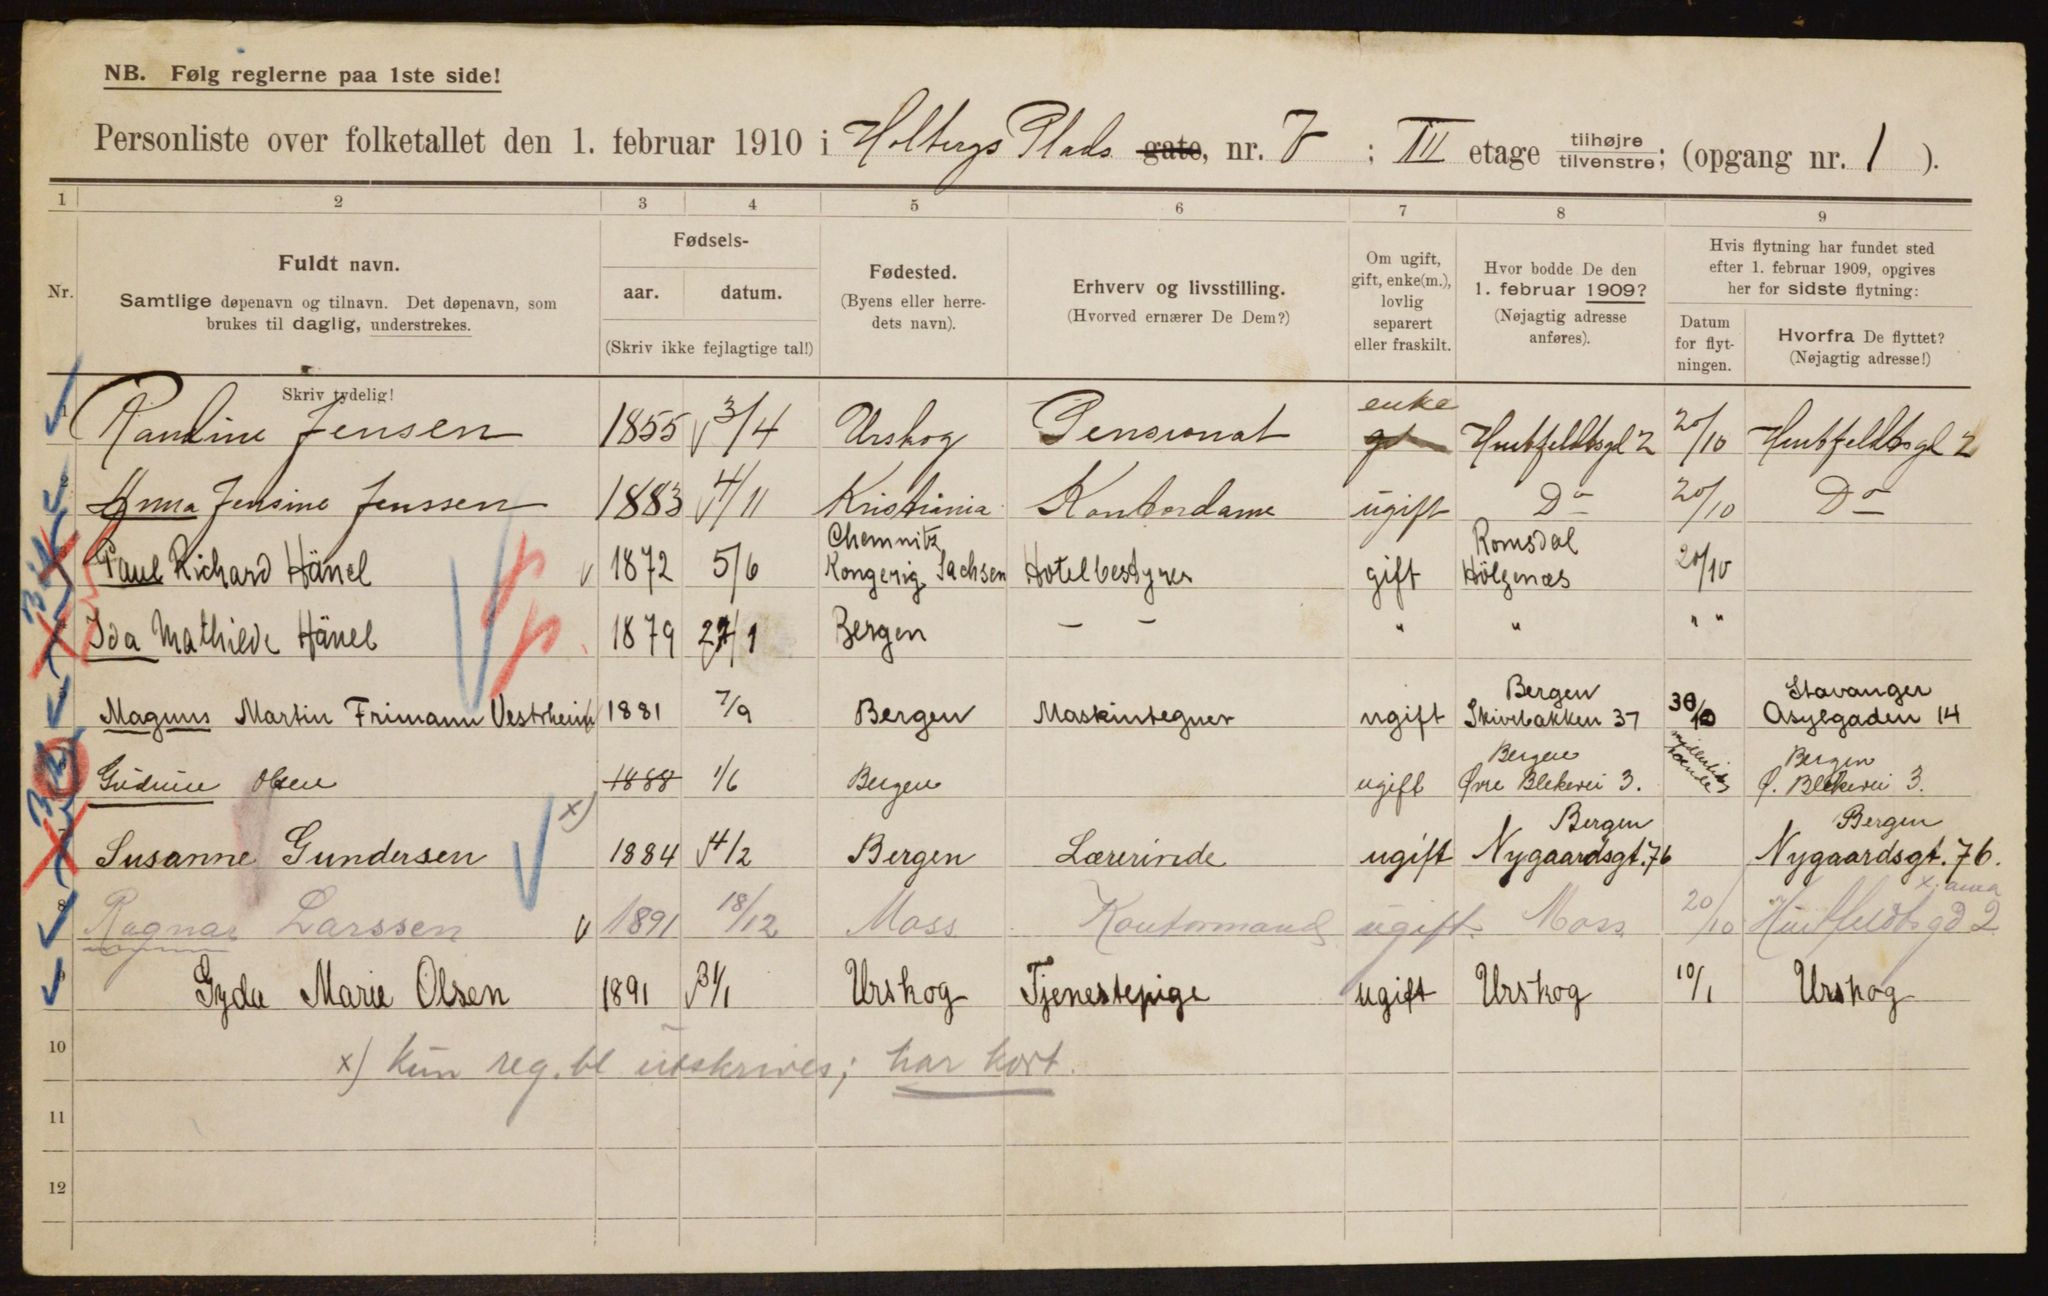 NB. Følg reglerne paa 1ste side!
Personliste over folketallet den 1. februar 1910 i Holbergs Plads gate, nr. 7 ; III etage tilhøjre tilvenstre; (opgang nr. 1 ).
1 2 3 4 5 6 7 8 9
Nr.
Fuldt navn.
Samtlige døpenavn og tilnavn. Det døpenavn, som
brukes til daglig, understrekes.
Skriv tydelig!
Fødsels-
aar. datum.
(Skriv ikke fejlagtige tal!)
Fødested.
(Byens eller herre-
dets navn).
Erhverv og livsstilling.
(Hvorved ernærer De Dem?)
Om ugift,
gift, enke(m.),
lovlig
separert
eller fraskilt.
Hvor bodde De den
1. februar 1909?
(Nøjagtig adresse
anføres).
Hvis flytning har fundet sted
efter 1. februar 1909, opgives
her for sidste flytning:
Datum
for flyt-
ningen.
Hvorfra De flyttet?
(Nøjagtig adresse!)
1 Pauline Jensen 1855 3/4 Urskog Pensionat enke Huitfeldtsgt 2 20/10 Huitfeldtsgt 2
2 Anna Jensine Jenssen 1883 4/11 Kristiania Kontordame ugift Do 20/10 Do
Paul Richard Hänel 1872 5/6 Chemnitz Kongerig Sachsen Hotelbestyrer gift Romsdal Hölgenæs 20/10
Ida Mathilde Hänel 1879 27/1 Bergen — — " " " "
Magnus Martin Frimann Vestrheim 1881 7/9 Bergen Maskintegner ugift Bergen Skivebakken 37 30/10 Stavanger Asylgaden 14
Gudrun Olsen 1888 1/6 Bergen ugift Bergen Øvre Blekevei 3. Bergen Ø. Blekevei 3.
7 Susanne Gundersen x) 1884 4/2 Bergen Lærerinde ugift Bergen Nygaardsgt. 76 Bergen Nygaardsgt. 76.
8 Ragnar Larssen 1891 18/12 Moss Kontormand ugift Moss 20/10 Huitfeldtsgd 2
9 Gyda Marie Olsen 1891 31/1 Urskog Tjenestepige ugift Urskog 10/1 Urskog
10 x) kun reg. bl utskrives; har kort.
11
12